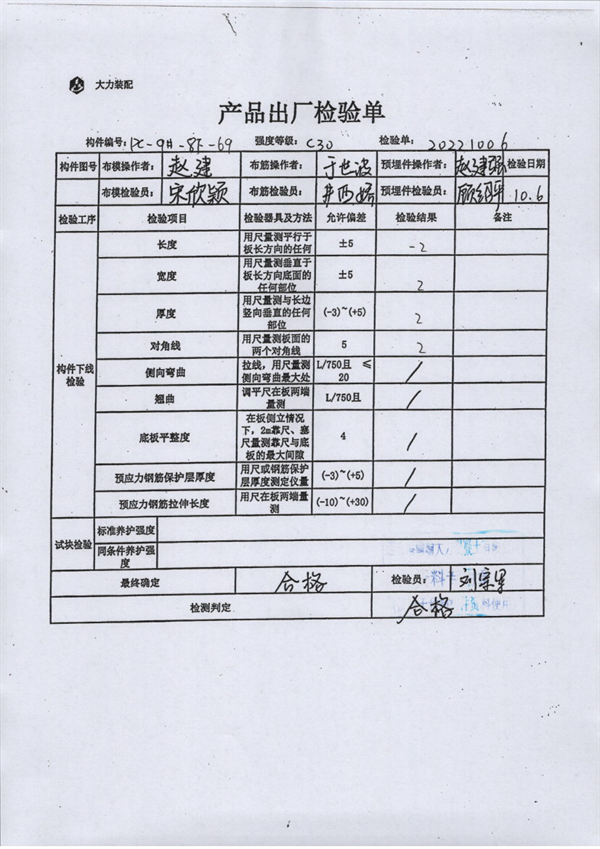 大力装配
产品出厂检验单
构件编号: PC-9#-8F-69 强度等级: C30 检验单: 20221006
构件图号 布模操作者: 赵建 布筋操作者: 于世波 预埋件操作者: 赵建强 检验日期
布模检验员: 宋欣颖 布筋检验员: 预埋件检验员: 10.6
检验工序 检验项目 检验器具及方法 允许偏差 检验结果 备注
构件下线检验
长度 用尺量测平行于板长方向的任何 ±5 -2
宽度 用尺量测垂直于板长方向底面的任何部位 ±5 2
厚度 用尺量测与长边竖向垂直的任何部位 (-3)~(+5) 2
对角线 用尺量测板面的两个对角线 5 2
侧向弯曲 拉线,用尺量测侧向弯曲最大处 L/750且 ≤20 /
翘曲 调平尺在板两端量测 L/750且 /
底板平整度 在板侧立情况下,2m靠尺、塞尺量测靠尺与底板的最大间隙 4 /
预应力钢筋保护层厚度 用尺或钢筋保护层厚度测定仪量 (-3)~(+5) /
预应力钢筋拉伸长度 用尺在板两端量测 (-10)~(+30) /
试块检验 标准养护强度
同条件养护强度
最终确定 合格 检验员:
检测判定 合格